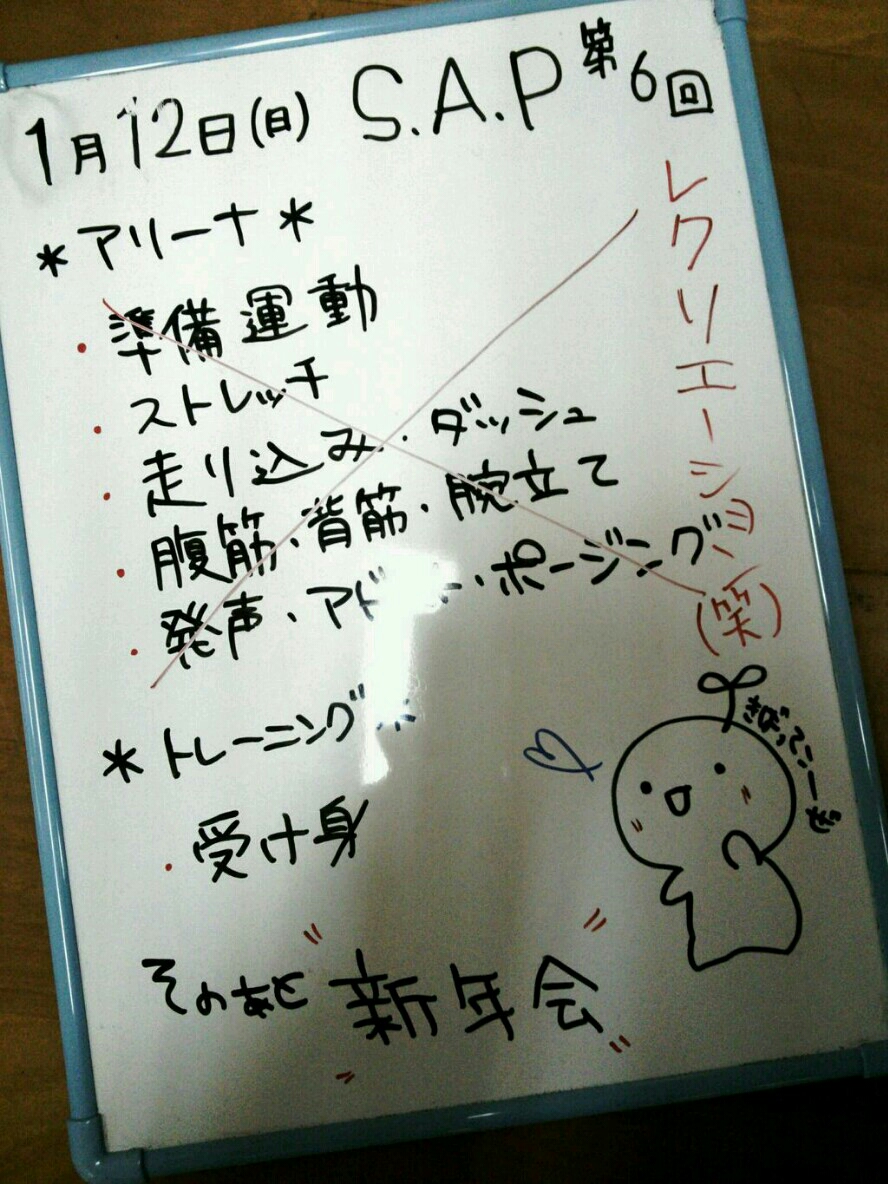 1月12日(日) S.A.P 第6回
レクリエーション(笑)
*アリーナ*
・準備運動
・ストレッチ
・走り込み・ダッシュ
・腹筋・背筋・腕立て
・発声・アド・ポージング
*トレーニング*
・受け身
きばってこーぜ
そのあと "新年会"